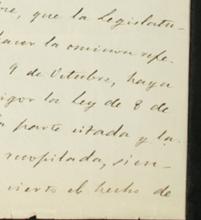 re, que la Legislatu-
hacer la omision refe-
9 de Octubre, haya
igor la Ley de 8 de
parte citada y la
recopilada, sien-
cierto el hecho de